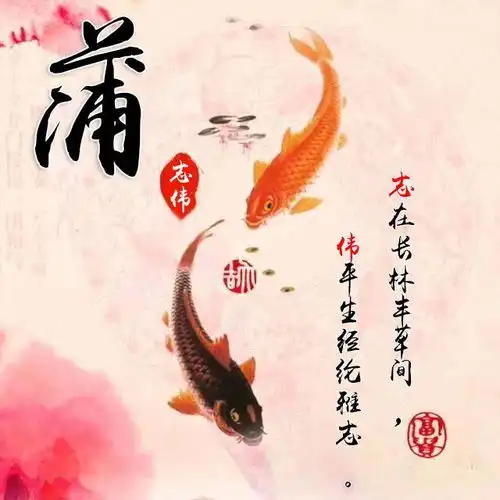 蒲
志伟
志在长林丰草间，
伟平生经纶雅志。
富贵